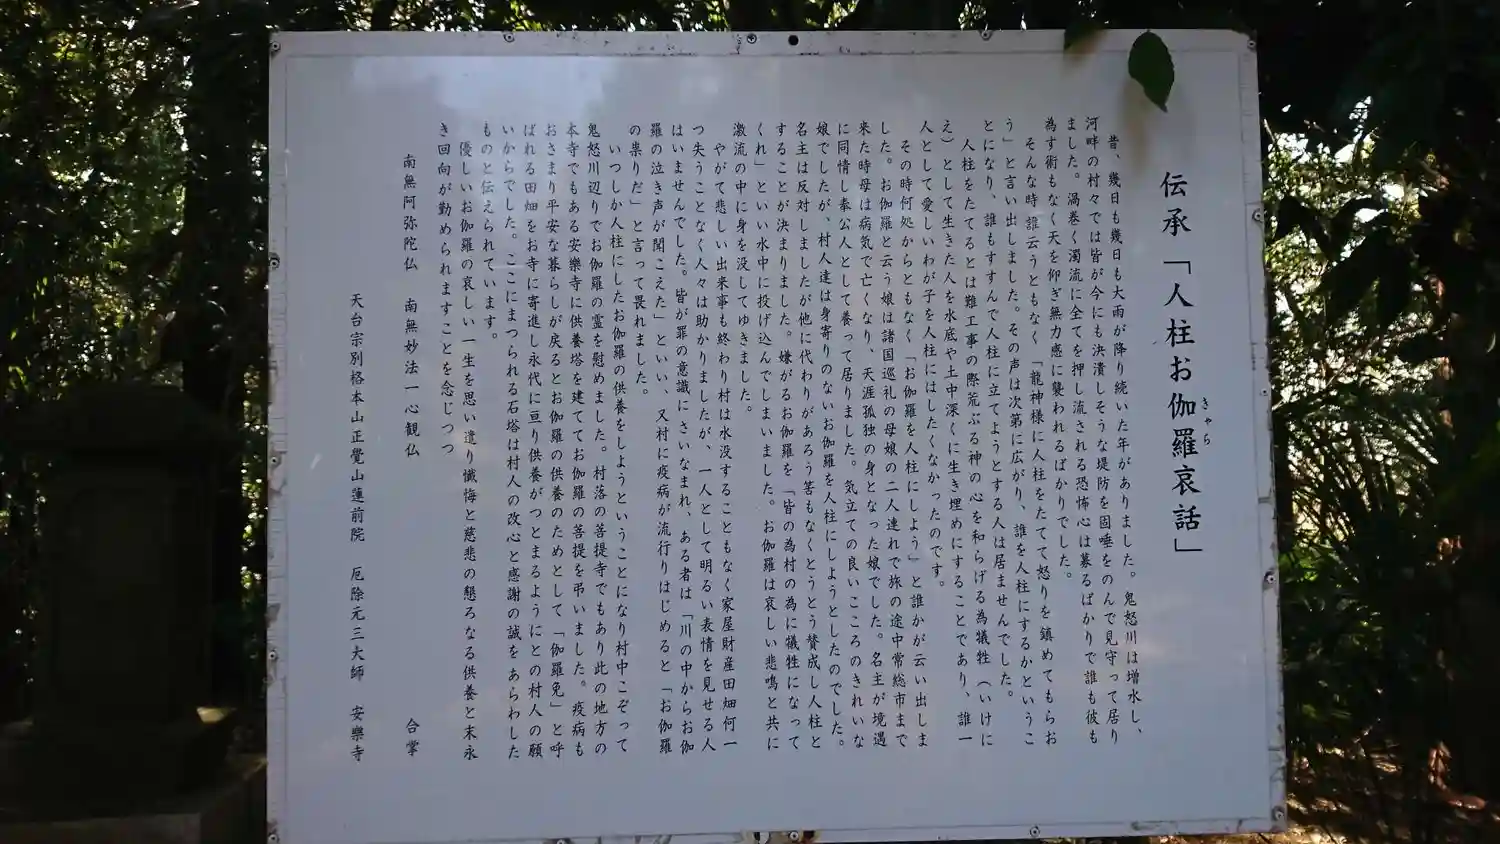 伝承「人柱お伽羅哀話」
きゃら
昔、幾日も幾日も大雨が降り続いた年がありました。鬼怒川は増水し、
河畔の村々では皆が今にも決潰しそうな堤防を固唾をのんで見守って居り
ました。渦巻く濁流に全てを押し流される恐怖心は募るばかりで誰も彼も
為す術もなく天を仰ぎ無力感に襲われるばかりでした。
そんな時誰云うともなく「龍神様に人柱をたてて怒りを鎮めてもらお
う」と言い出しました。その声は次第に広がり、誰を人柱にするかというこ
とになり、誰もすすんで人柱に立てようとする人は居ませんでした。
人柱をたてるとは難工事の際荒ぶる神の心を和らげる為犠牲（いけに
え）として生きた人を水底や土中深くに生き埋めにすることであり、誰一
人として愛しいわが子を人柱にはしたくなかったのです。
その時何処からともなく「お伽羅を人柱にしよう」と誰かが云い出しま
した。お伽羅と云う娘は諸国巡礼の母娘の二人連れで旅の途中常総市まで
来た時母は病気で亡くなり、天涯孤独の身となった娘でした。名主が境遇
に同情し奉公人として養って居りました。気立ての良いこころのきれいな
娘でしたが、村人達は身寄りのないお伽羅を人柱にしようとしたのでした。
名主は反対しましたが他に代わりがあろう筈もなくとうとう賛成し人柱と
することが決まりました。嫌がるお伽羅を「皆の為村の為に犠牲になって
くれ」といい水中に投げ込んでしまいました。お伽羅は哀しい悲鳴と共に
激流の中に身を没してゆきました。
やがて悲しい出来事も終わり村は水没することもなく家屋財産田畑何一
つ失うことなく人々は助かりましたが、一人として明るい表情を見せる人
はいませんでした。皆が罪の意識にさいなまれ、ある者は「川の中からお伽
羅の泣き声が聞こえた」といい、又村に疫病が流行りはじめると「お伽羅
の祟りだ」と言って畏れました。
いつしか人柱にしたお伽羅の供養をしようということになり村中こぞって
鬼怒川辺りでお伽羅の霊を慰めました。村落の菩提寺でもあり此の地方の
本寺でもある安樂寺に供養塔を建ててお伽羅の菩提を弔いました。疫病も
おさまり平安な暮らしが戻るとお伽羅の供養のためとして「伽羅免」と呼
ばれる田畑をお寺に寄進し永代に亘り供養がつとまるようにとの村人の願
いからでした。ここにまつられる石塔は村人の改心と感謝の誠をあらわした
ものと伝えられています。
優しいお伽羅の哀しい一生を思い遣り懺悔と慈悲の懇ろなる供養と末永
き回向が勤められますことを念じつつ
南無阿弥陀仏　南無妙法一心観仏　合掌
天台宗別格本山正覺山蓮前院　厄除元三大師　安樂寺